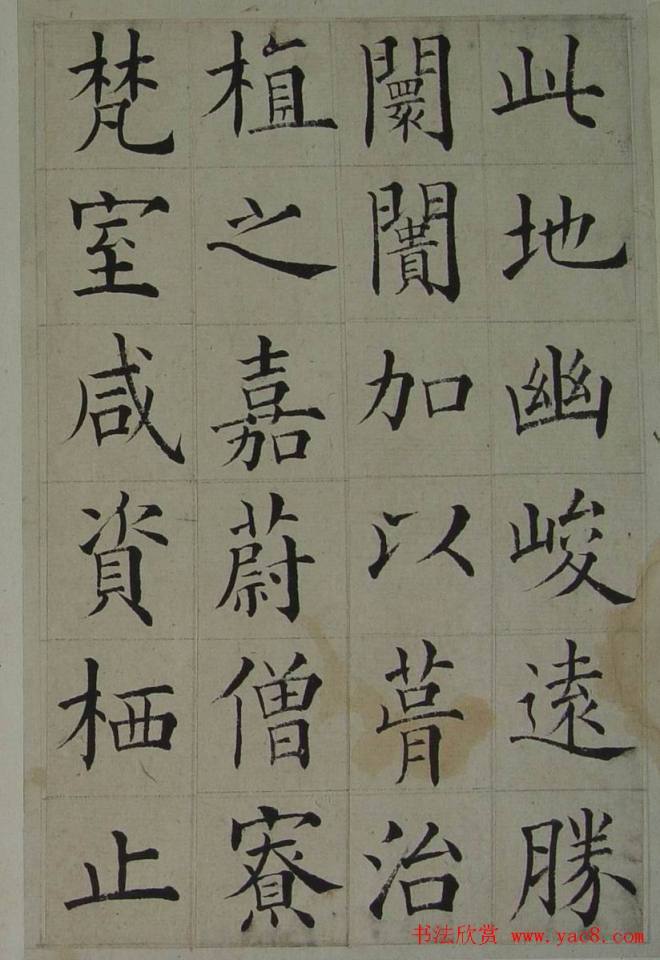 此地幽峻遠勝
闤闠加以葺治
植之嘉蔚僧寮
梵室咸資栖止
书法欣赏 www.yac8.com